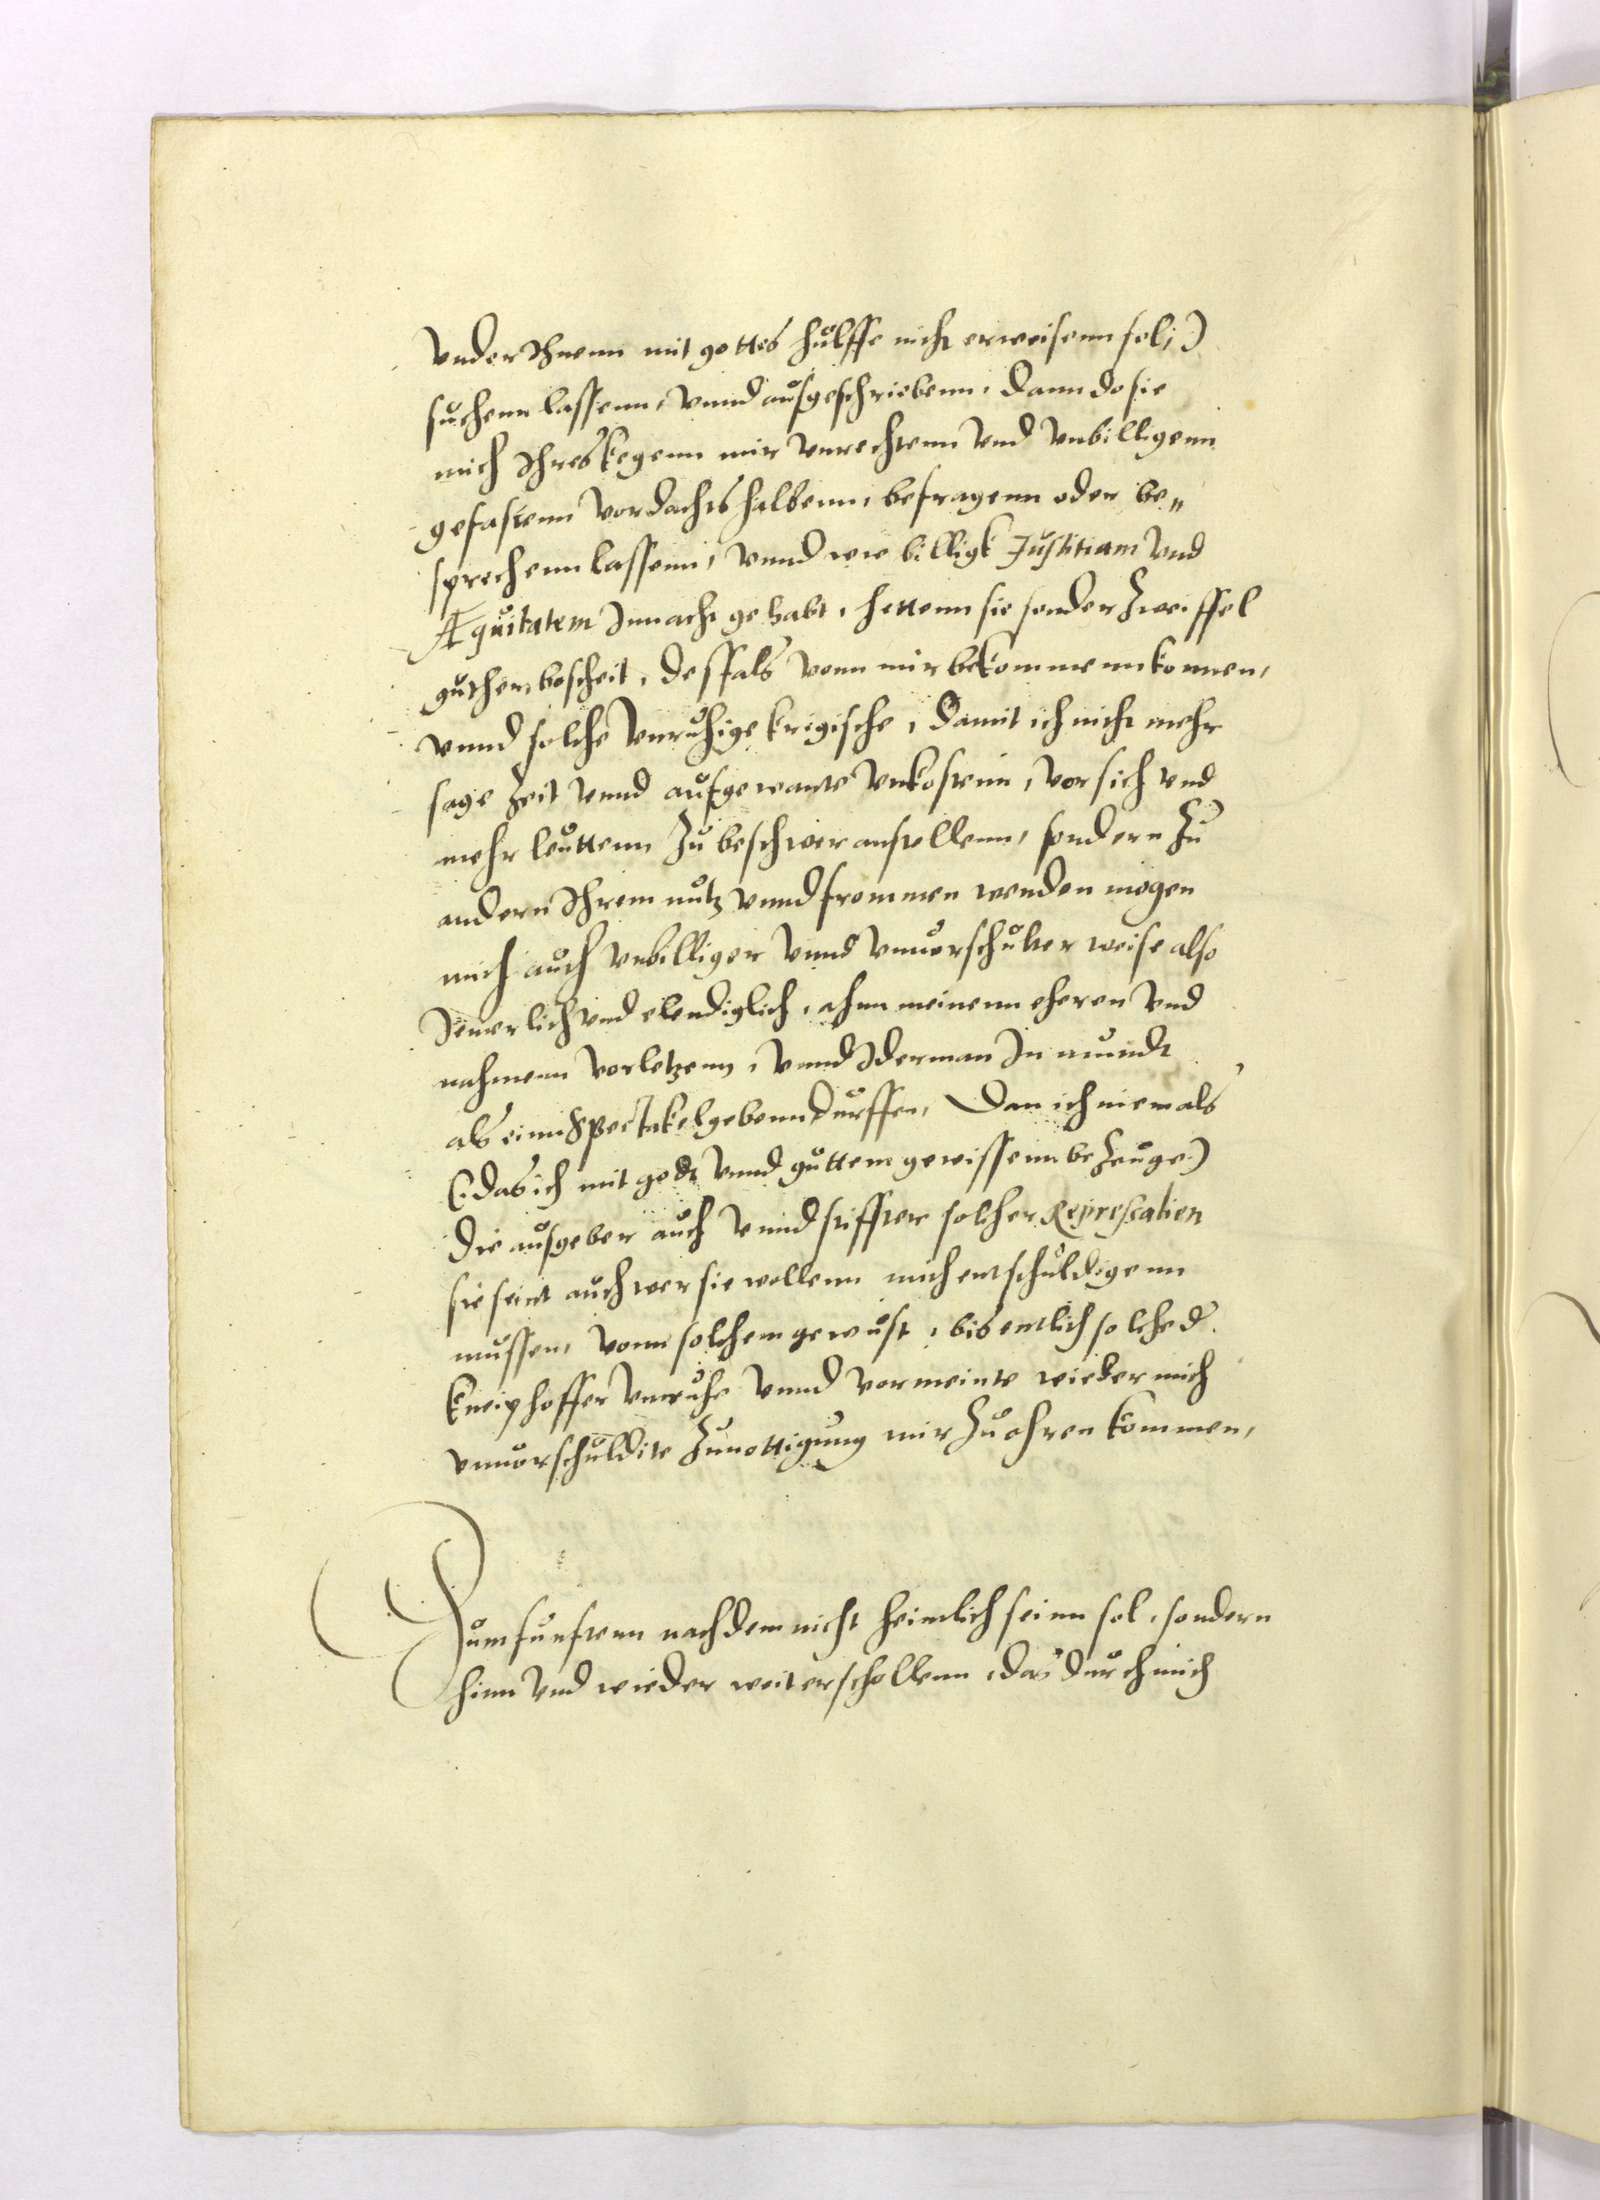 vnder Ihnenn mit gottes hulffe nicht erweisenn sol:)
suchenn lassenn, vnnd ausgeschriebenn. Dann do sie
mich Ihres kegenn mir vnrechtenn vnd vnbilligenn
gefastenn vordachts halbenn, befragenn oder be„
sprechenn lassenn, vnnd wie billigk Justitiam vnd
Æquitatem Inn acht gehabt, hettenn sie sonder Zweiffel
guthen bescheit, desfals vonn mir bekommenn konnen,
vnnd solche vnruhige kregische, damit ich nicht mehr
sage Zeit vnnd aufgewante vnkostenn, vor sich vnd
mehr leuttenn Zu beschwer anstellenn, sondern Zu
andern Ihrem nutz vnnd frommen wenden mogen
mich auch vnbilliger vnnd vnuorschulter weise also
Jemerlich vnd elendiglich, ahnn meinenn eheren vnd
nahmenn vorletzenn, vnnd Iderman In mundt
als einn Spectakel gebenn durffen, Dan ich niemals
(:das ich mit godt vnnd guttem gewissenn beZeuge:)
die ausgeber auch vnnd stiffter solcher Represalien
sie seint auch wer sie wollenn mich entschuldigenn
mussen, vonn solchem gewust, bis entlich solche d
kneiphoffer vnruhe vnnd vormeinte wieder mich
vnuorschuldite Zunottigung mir Zu ohren kommen,
Zum funftenn nach dem nicht heimlich seinn sol, sondern
hinn vnd wieder weit erschollenn, das durch mich